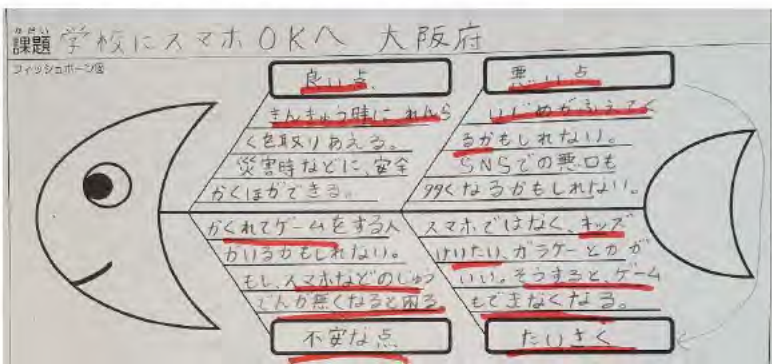 かだい
課題 学校にスマホOKへ 大阪府
フィッシュボーン図
良い点
きんきゅう時にれんら
くを取りあえる。
災害時などに、安全
かくほができる。
悪い点
いじめがふえてく
るかもしれない。
SNSでの悪口も
多くなるかもしれない。
かくれてゲームをする人
がいるかもしれない。
もし、スマホなどのじゅう
でんが無くなると困る
不安な点
スマホではなく、キッズ
けいたい、ガラケーとかが
いい。そうすると、ゲーム
もできなくなる。
たいさく